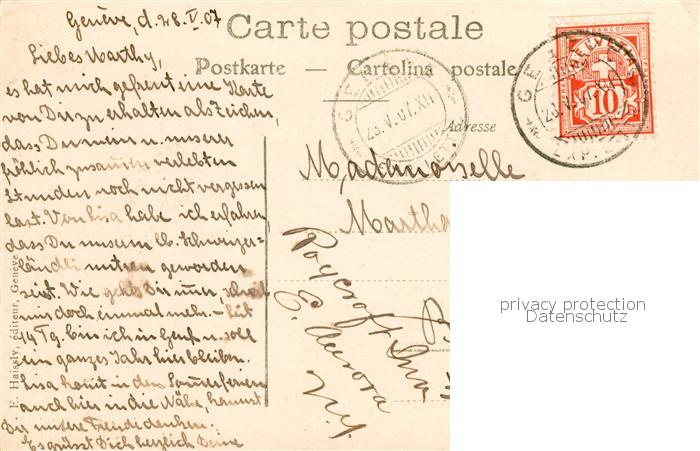 Genève, d. 28. V. 07
Carte postale
Postkarte — Cartolina postale
Adresse
Liebes Marthy,
es hat mich gefreut eine Karte
von Dir zu erhalten als Zeichen,
dass Du meine u. unserer
fröhlich zusammen verlebten
Stunden noch nicht vergessen
hast. Von Lisa habe ich erfahren,
dass Du unserm lb. Schweizer-
ländli untreu geworden
seist. Wie geht's Dir immer, schreib
mir doch einmal mehr. — Seit
14 Tg. bin ich in Genf u. soll
ein ganzes Jahr hier bleiben.
Lisa kommt in den Sommerferien
auch hier in die Nähe, kannst
Dir unsere Freude denken.
Es grüsst Dich herzlich Deine
Mademoiselle
Martha
Roycroft Inn
E. Aurora
N.Y.
E. Haissly, éditeur, Genève
HELVETIA
10
23.V.07.XII
EXP.
privacy protection
Datenschutz